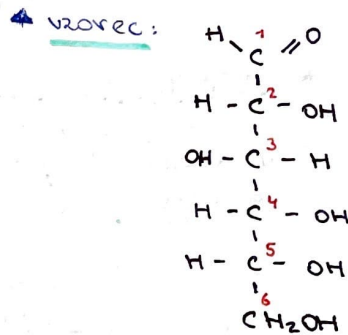 vzorec:
H 1 O
C
H - C 2 - OH
OH - C 3 - H
H - C 4 - OH
H - C 5 - OH
6
CH₂OH